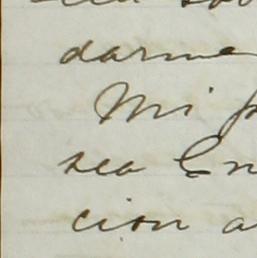 darme
Mi
sea En
cion a